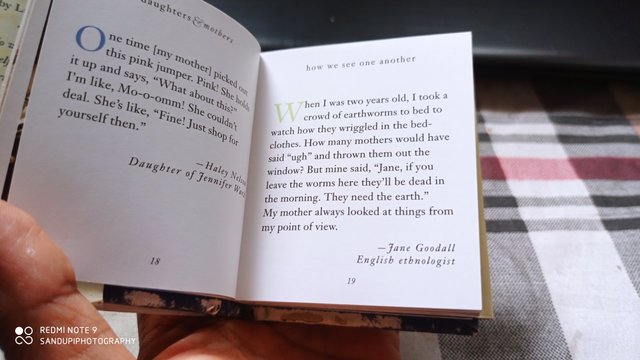 daughters & mothers
One time [my mother] picked out
this pink jumper. Pink! She holds
it up and says, "What about this?"
I'm like, Mo-o-omm! She couldn't
deal. She's like, "Fine! Just shop for
yourself then."
—Haley
Daughter of Jennifer
18
how we see one another
When I was two years old, I took a
crowd of earthworms to bed to
watch how they wriggled in the bed-
clothes. How many mothers would have
said "ugh" and thrown them out the
window? But mine said, "Jane, if you
leave the worms here they'll be dead in
the morning. They need the earth."
My mother always looked at things from
my point of view.
—Jane Goodall
English ethnologist
19
REDMI NOTE 9
SANDUPIPHOTOGRAPHY